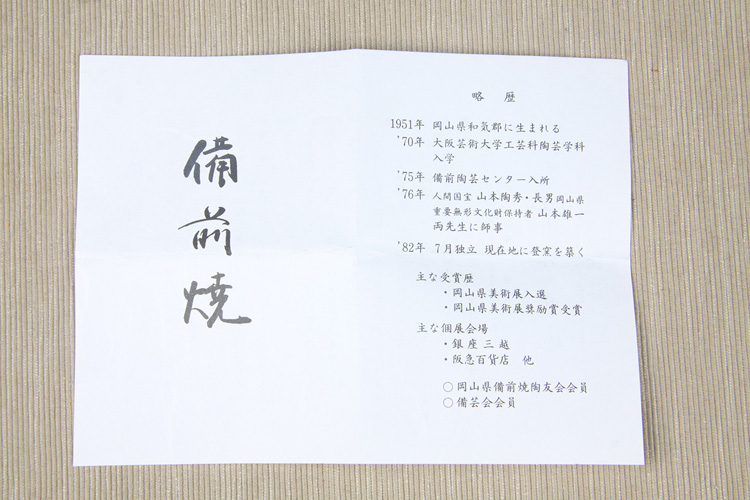 備前焼
略歴
1951年 岡山県和気郡に生まれる
'70年 大阪芸術大学工芸科陶芸学科
入学
'75年 備前陶芸センター入所
'76年 人間国宝 山本陶秀・長男岡山県
重要無形文化財保持者 山本雄一
両先生に師事
'82年 7月独立 現在地に登窯を築く
主な受賞歴
・岡山県美術展入選
・岡山県美術展奨励賞受賞
主な個展会場
・銀座三越
・阪急百貨店 他
○ 岡山県備前焼陶友会会員
○ 備芸会会員